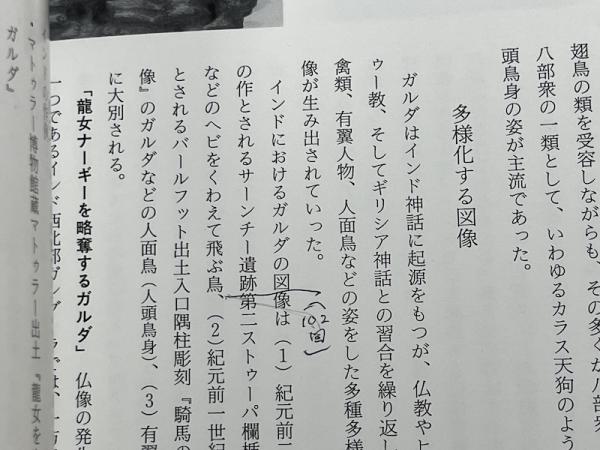 翅鳥の類を受容しながらも、その多くが八部衆
八部衆の一類として、いわゆるカラス天狗のよう
頭鳥身の姿が主流であった。
多様化する図像
ガルダはインド神話に起源をもつが、仏教やヒ
ゥー教、そしてギリシア神話との習合を繰り返し
禽類、有翼人物、人面鳥などの姿をした多種多様
像が生み出されていった。
インドにおけるガルダの図像は（1）紀元前二
の作とされるサーンチー遺跡第二ストゥーパ欄楯
などのヘビをくわえて飛ぶ鳥、（2）紀元前一世紀
とされるバールフット出土入口隅柱彫刻『騎馬の
像』のガルダなどの人面鳥（人頭鳥身）、（3）有翼
に大別される。
「龍女ナーギーを略奪するガルダ」 仏像の発生
一つであるインド西北部ガンダーラでは、一方
・マトゥラー博物館蔵マトゥラー出土『龍女を
ガルダ』
（102
図）